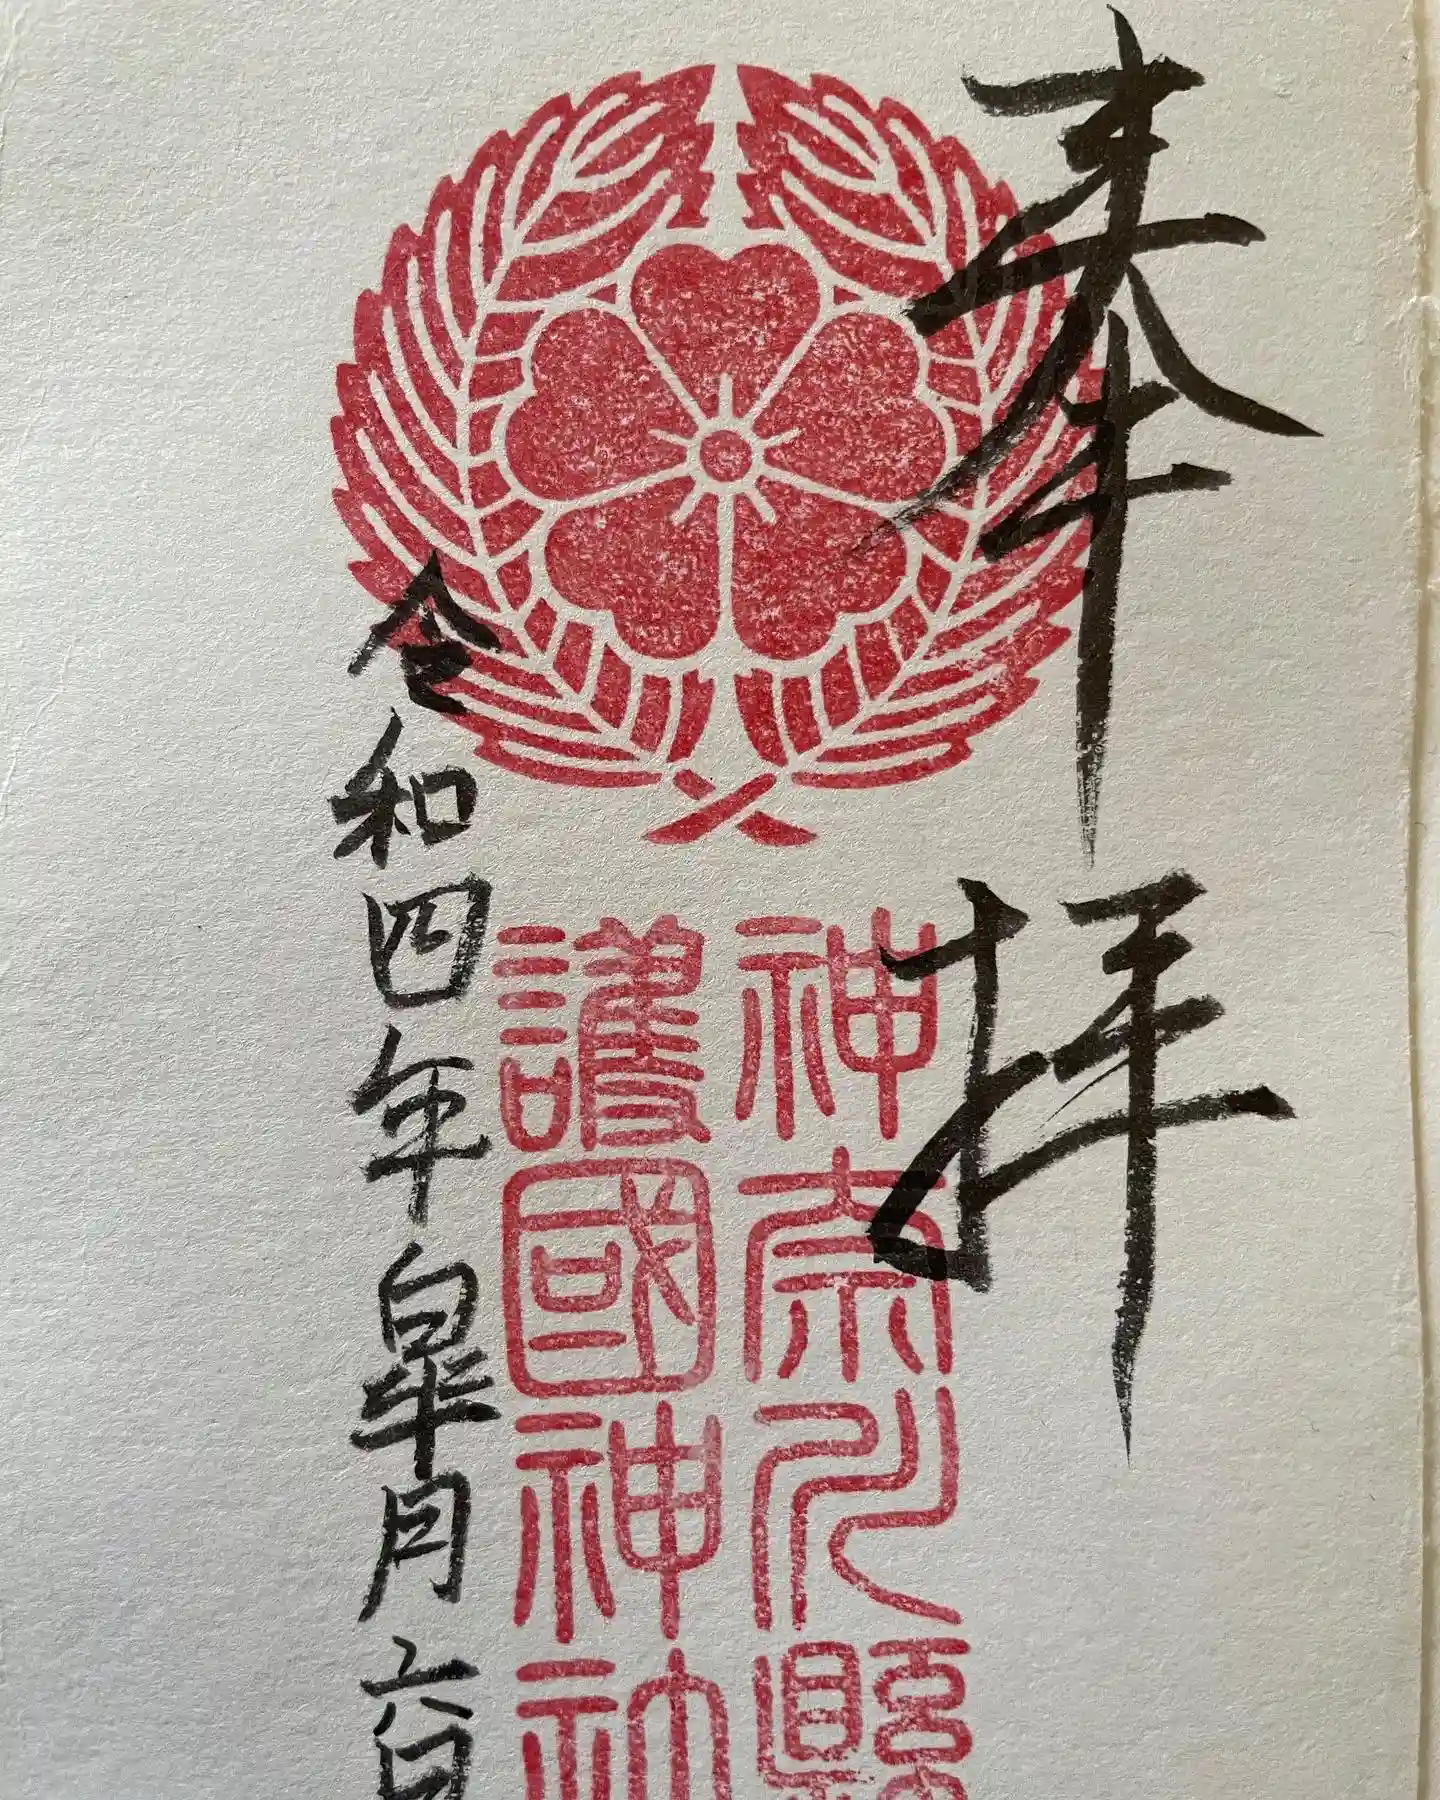 奉拝
神奈川縣
護國神
令和四年皐月六日